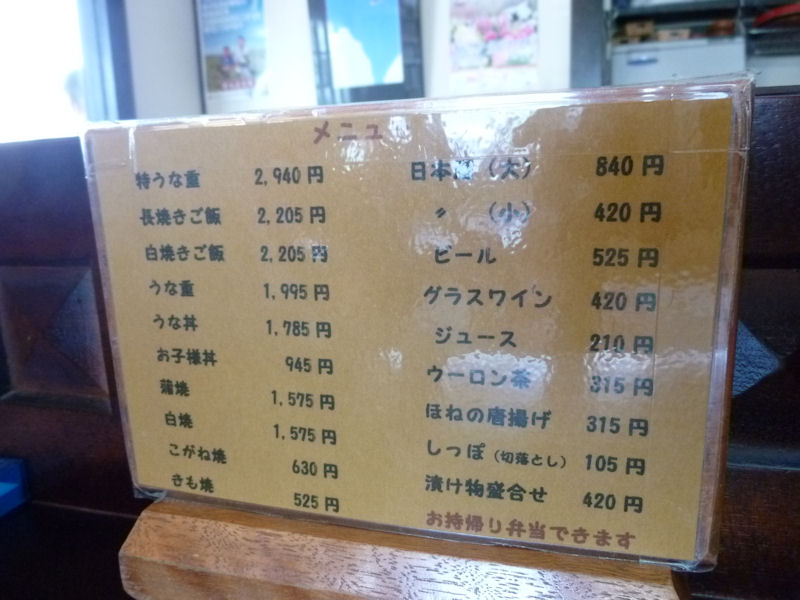 メニュー
特うな重 2,940円
長焼きご飯 2,205円
白焼きご飯 2,205円
うな重 1,995円
うな丼 1,785円
お子様丼 945円
蒲焼 1,575円
白焼 1,575円
こがね焼 630円
きも焼 525円
日本酒(大) 840円
〃 (小) 420円
ビール 525円
グラスワイン 420円
ジュース 210円
ウーロン茶 315円
ほねの唐揚げ 315円
しっぽ(切落とし) 105円
漬け物盛合せ 420円
お持帰り弁当できます